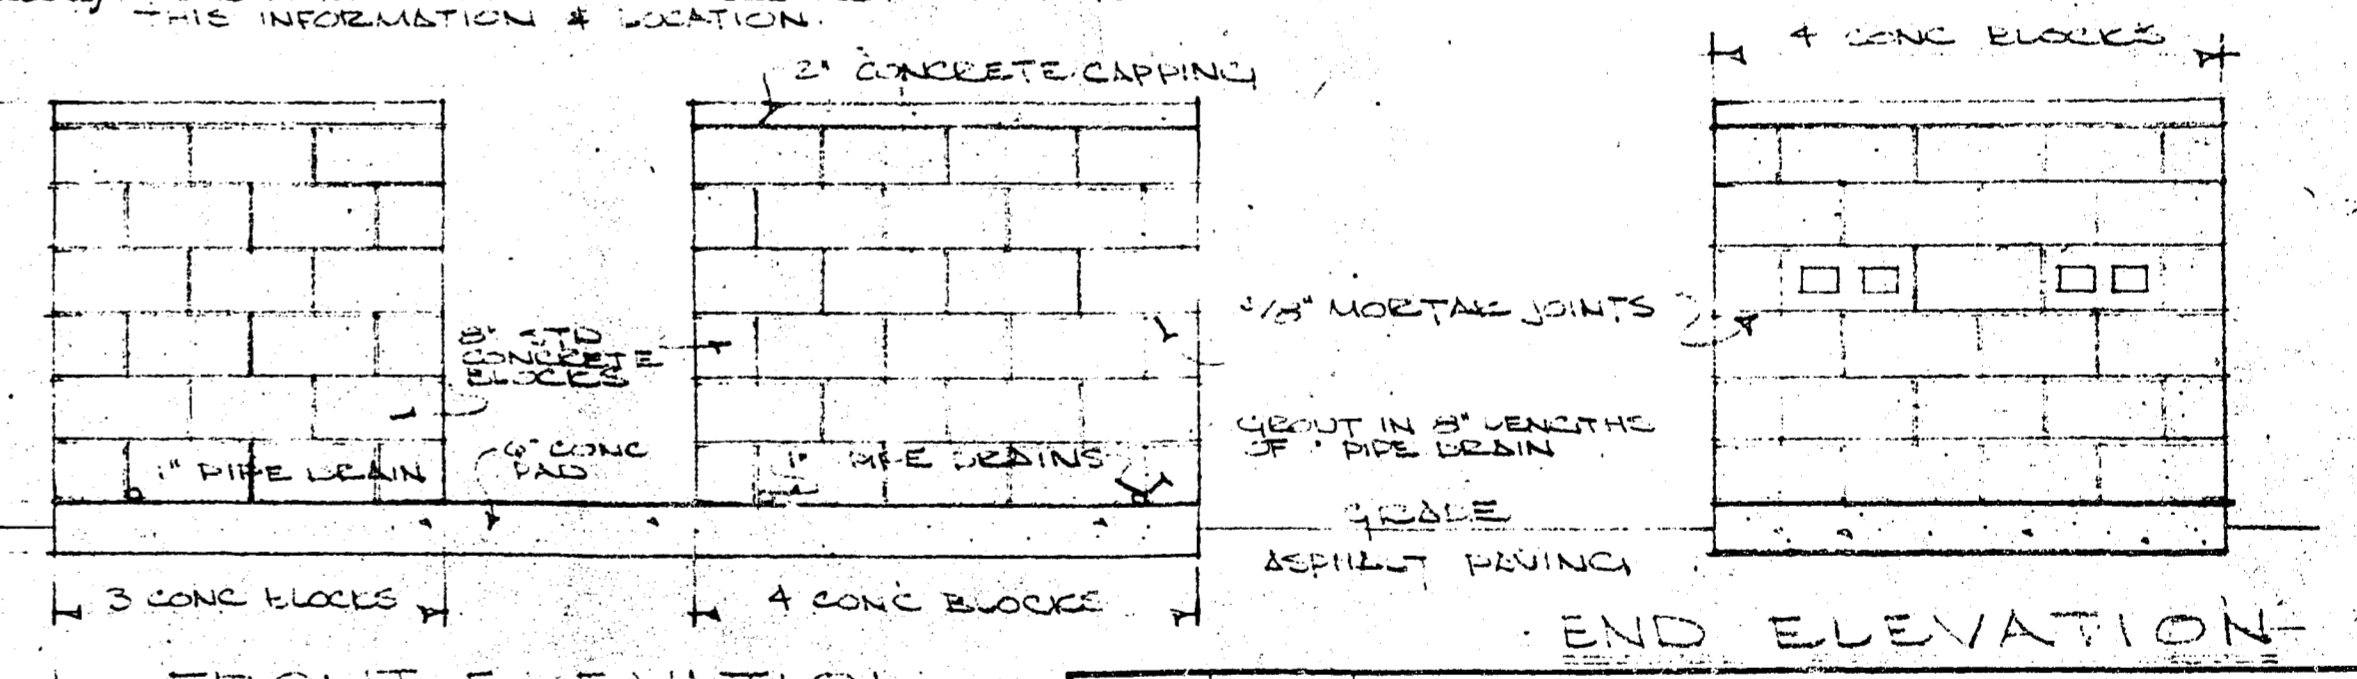 THIS INFORMATION & LOCATION.
2" CONCRETE CAPPING
4 CONC BLOCKS
8" STD
CONCRETE
BLOCKS
MORTAR JOINTS
GROUT IN 8" LENGTHS
OF PIPE DRAIN
1" PIPE DRAIN
6" CONC
PAD
1" PIPE DRAINS
GRADE
ASPHALT PAVING
3 CONC BLOCKS
4 CONC BLOCKS
END ELEVATION
FRONT ELEVATION